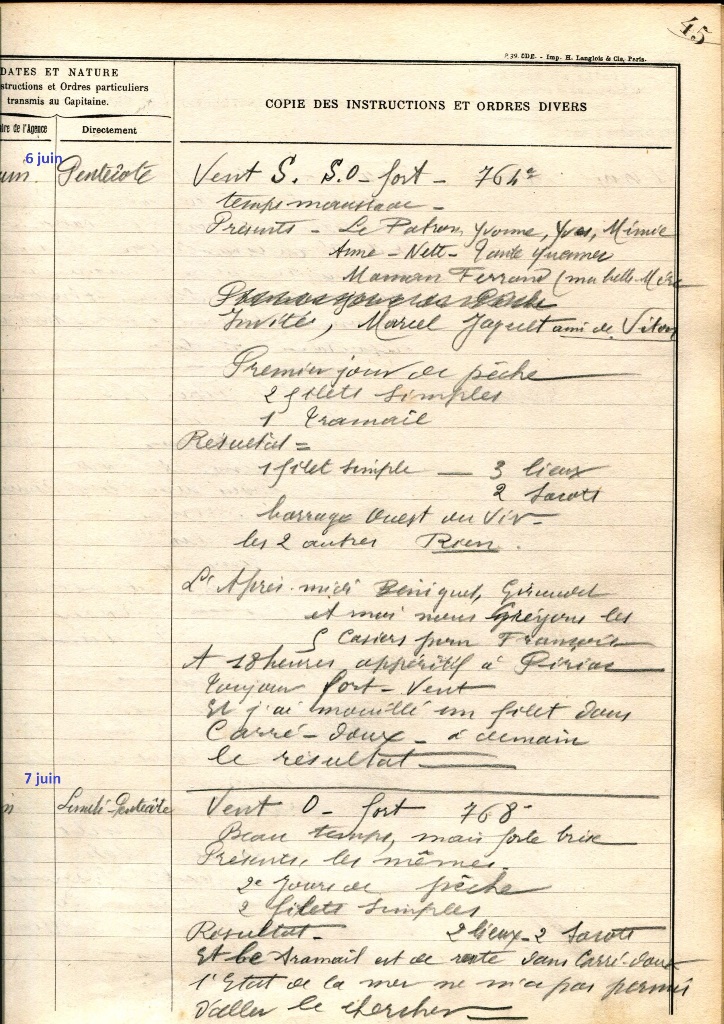 45
P 39. EDE. - Imp. H. Langlois & Cie, Paris.
DATES ET NATURE
structions et Ordres particuliers
transmis au Capitaine.
ire de l'Agence
Directement
COPIE DES INSTRUCTIONS ET ORDRES DIVERS
6 juin
Pentecôte
Vent S. S.O - fort - 764
temps maussade -
Présents - Le Patron, Yvonne, Yves, Mimie
Anne - Nett - Tante
Maman Ferrand (ma belle-Mère
Invité, Marcel Jaquet ami de
Premier jour de pêche
2 filets simples
1 Tramail
Résultat =
1 filet simple — 3 lieux
2 Tacots
barrage Ouest du Viv -
les 2 autres Rien.
L'Après-midi Béniguel,
et moi nous gréyons les
5 Casiers pour François
A 18 heures appéritif à Piriac
Toujour fort - Vent
Et j'ai mouillé un filet dans
Carré-doux - à demain
le résultat
7 juin
Lundi-Pentecôte
Vent O - fort 768
Beau temps, mais forte brise
Présents, les mêmes.
2e Jours de pêche
2 filets simples
Résultat - 2 lieux - 2 Tacots
Et le tramail est de reste dans Carré-doux
l'Etat de la mer ne m'a pas permis
d'aller le chercher